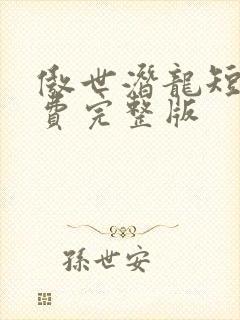 傲世潛龍短
費完整版
孫世安